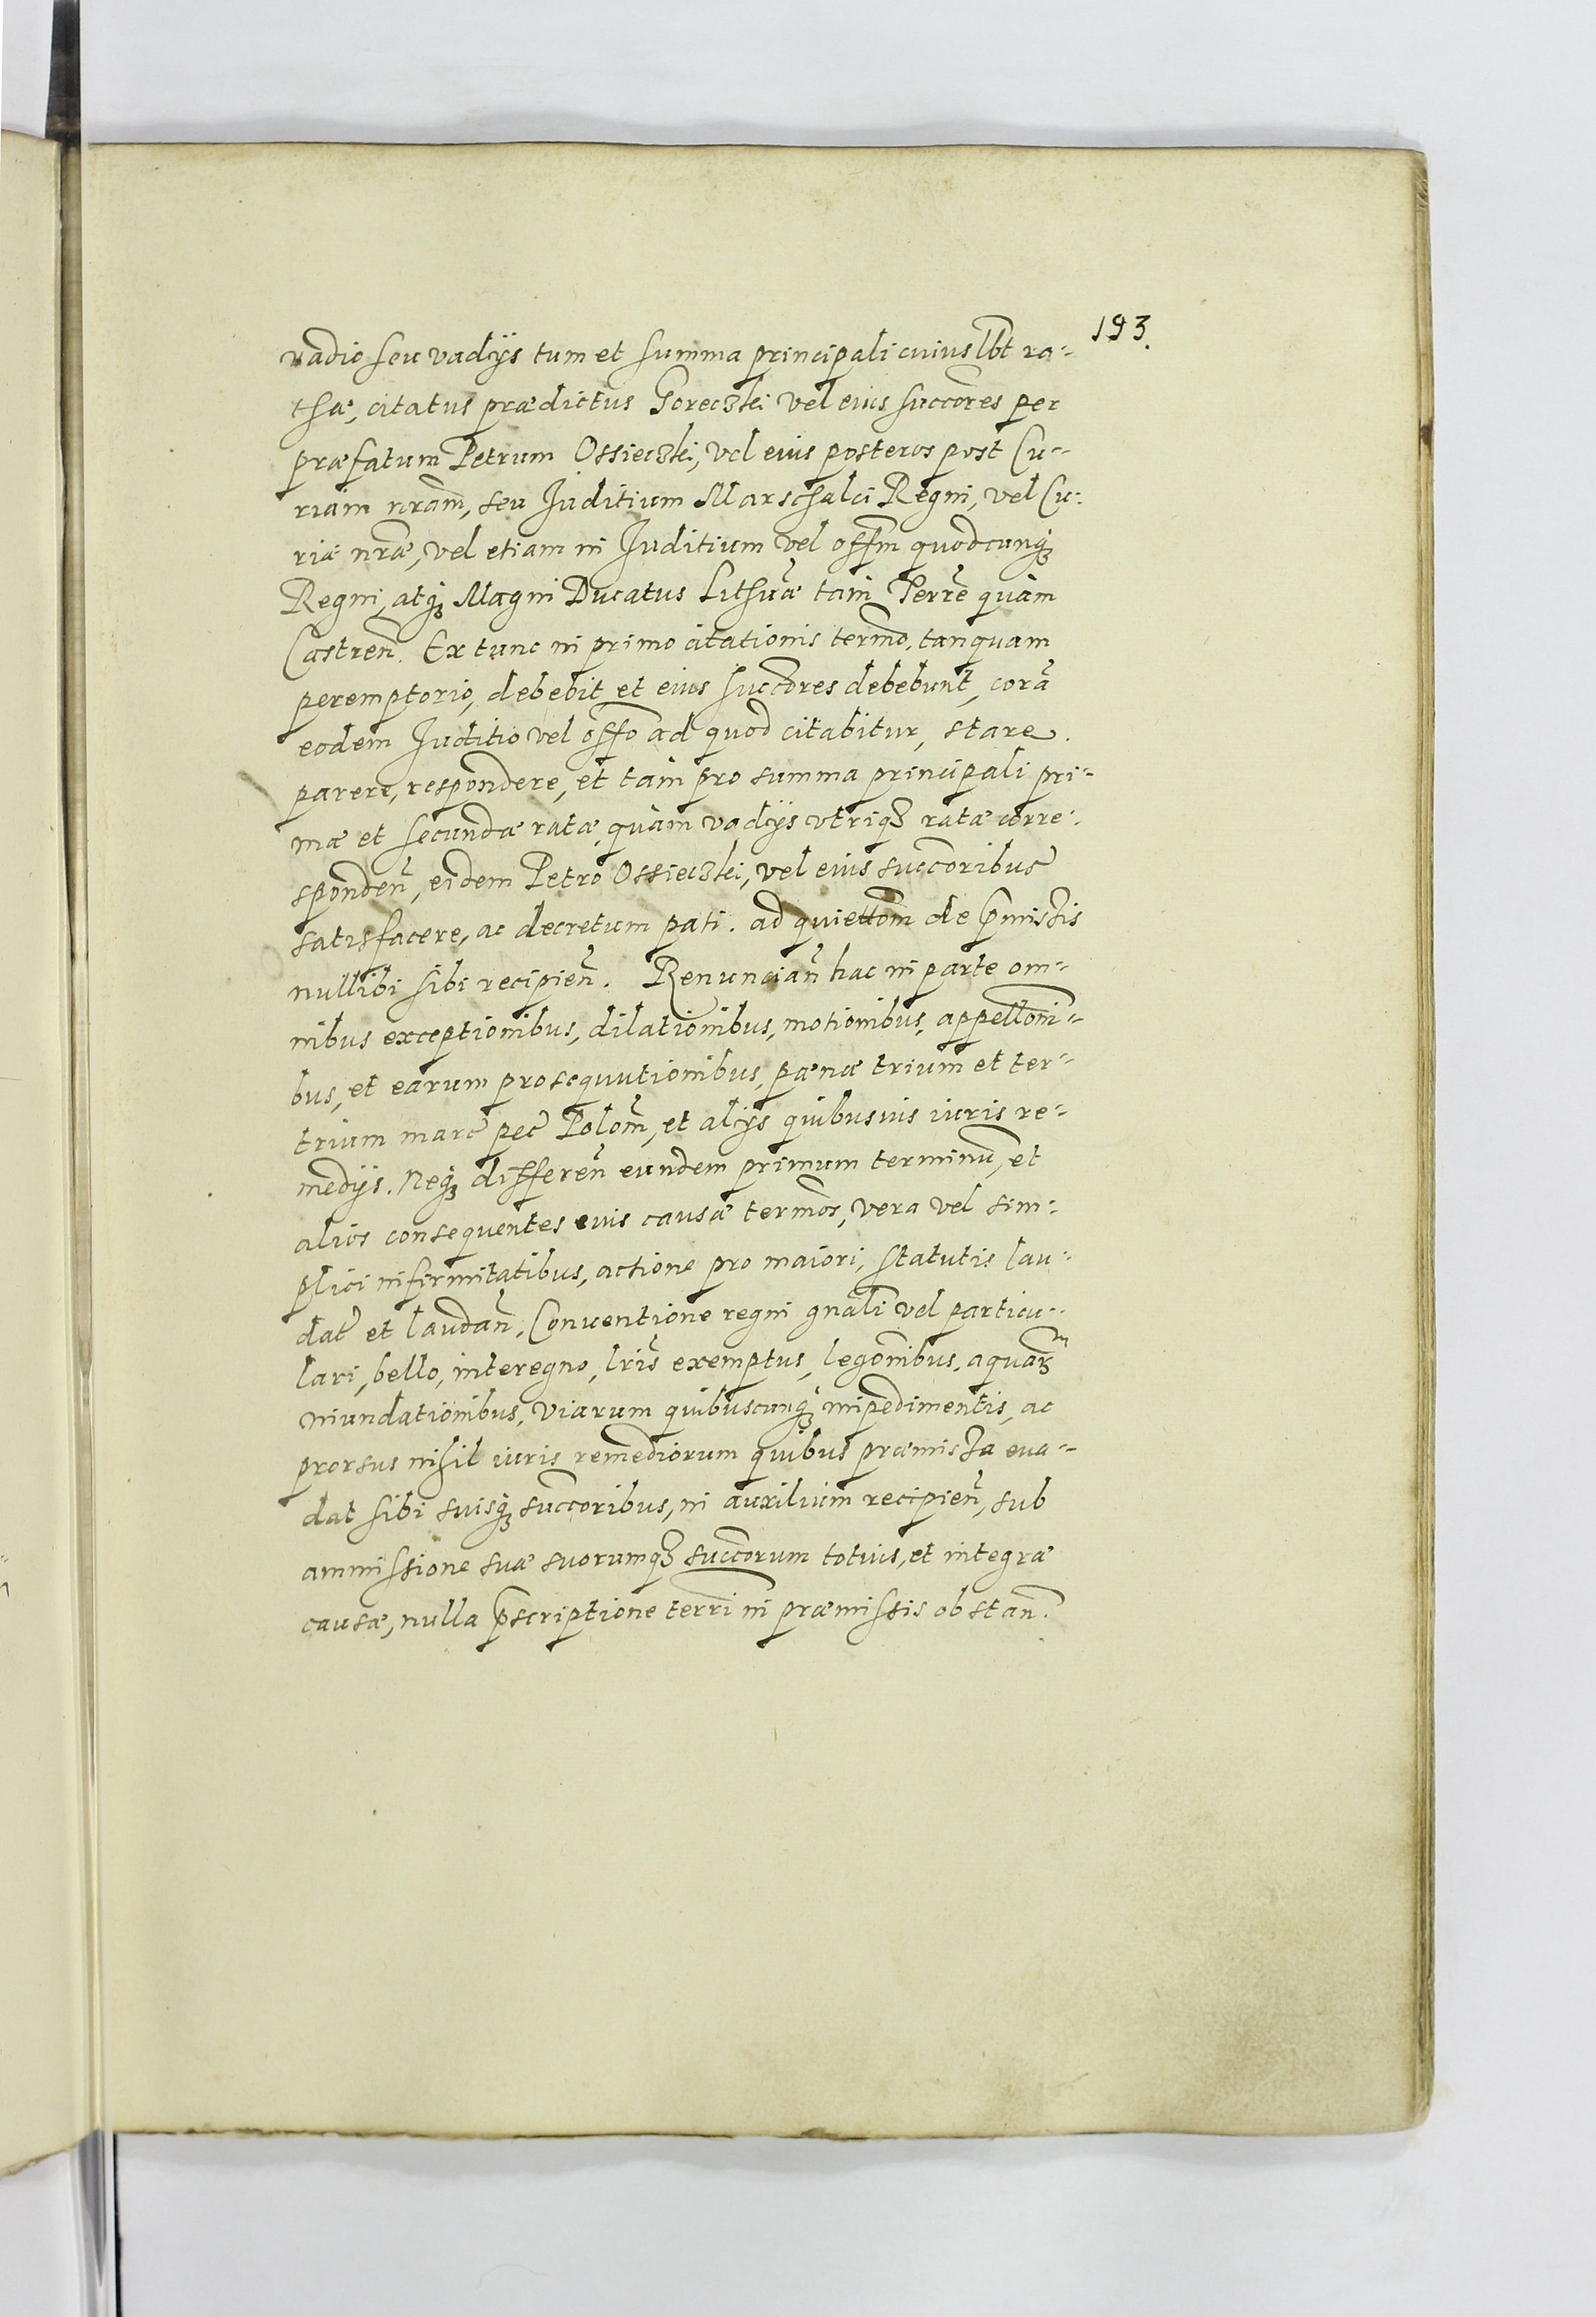 193.
vadio seu vadijs tum et summa principali cuius lbt ra-
thæ, citatus prædictus Goreczki vel eius succores per
præfatum Petrum Ossieczki, vel eius posteros post Cu-
riam nram, seu Juditium Marschalci Regni, vel Cu-
riæ nræ, vel etiam in Juditium vel offm quodcunq3
Regni, atq3 Magni Ducatus Lithuæ tam Terre quam
Castren. Ex tunc in primo citationis termo, tanquam
peremptorio, debebit et eius succores debebunt, cora
eodem Juditio vel offo ad quod citabitur, stare.
parere, respondere, et tam pro summa principali pri-
mæ et secundæ ratæ, quam vadijs utriq3 ratæ corre-
sponden, eidem Petro Ossieczki, vel eius succoribus
satisfacere, ac decretum pati. ad quiettom de pmissis
nullibi sibi recipien. Renuncian hac in parte om-
nibus exceptionibus, dilationibus, motionibus, appelloni-
bus, et earum prosequutionibus, pænæ trium et ter-
trium marc pec Polom, et alijs quibusuis iuris re-
medijs. Neq3 differen eundem primum terminu, et
alios consequentes euis causæ termos, vera vel sim-
plici infirmitatibus, actione pro maiori, statutis lau-
dat et laudan, Conuentione regni gnali vel particu-
lari, bello, interegno, lris exemptus, legonibus, aquar3
inundationibus, viarum quibuscunq3 impedimentis, ac
prorsus nihil iuris remediorum quibus præmissa eua-
dat sibi suisq3 succoribus, in auxilium recipien, sub
ammissione suæ suorumq3 succorum totius, et integræ
causæ, nulla pscriptione terri in præmissis obstan.